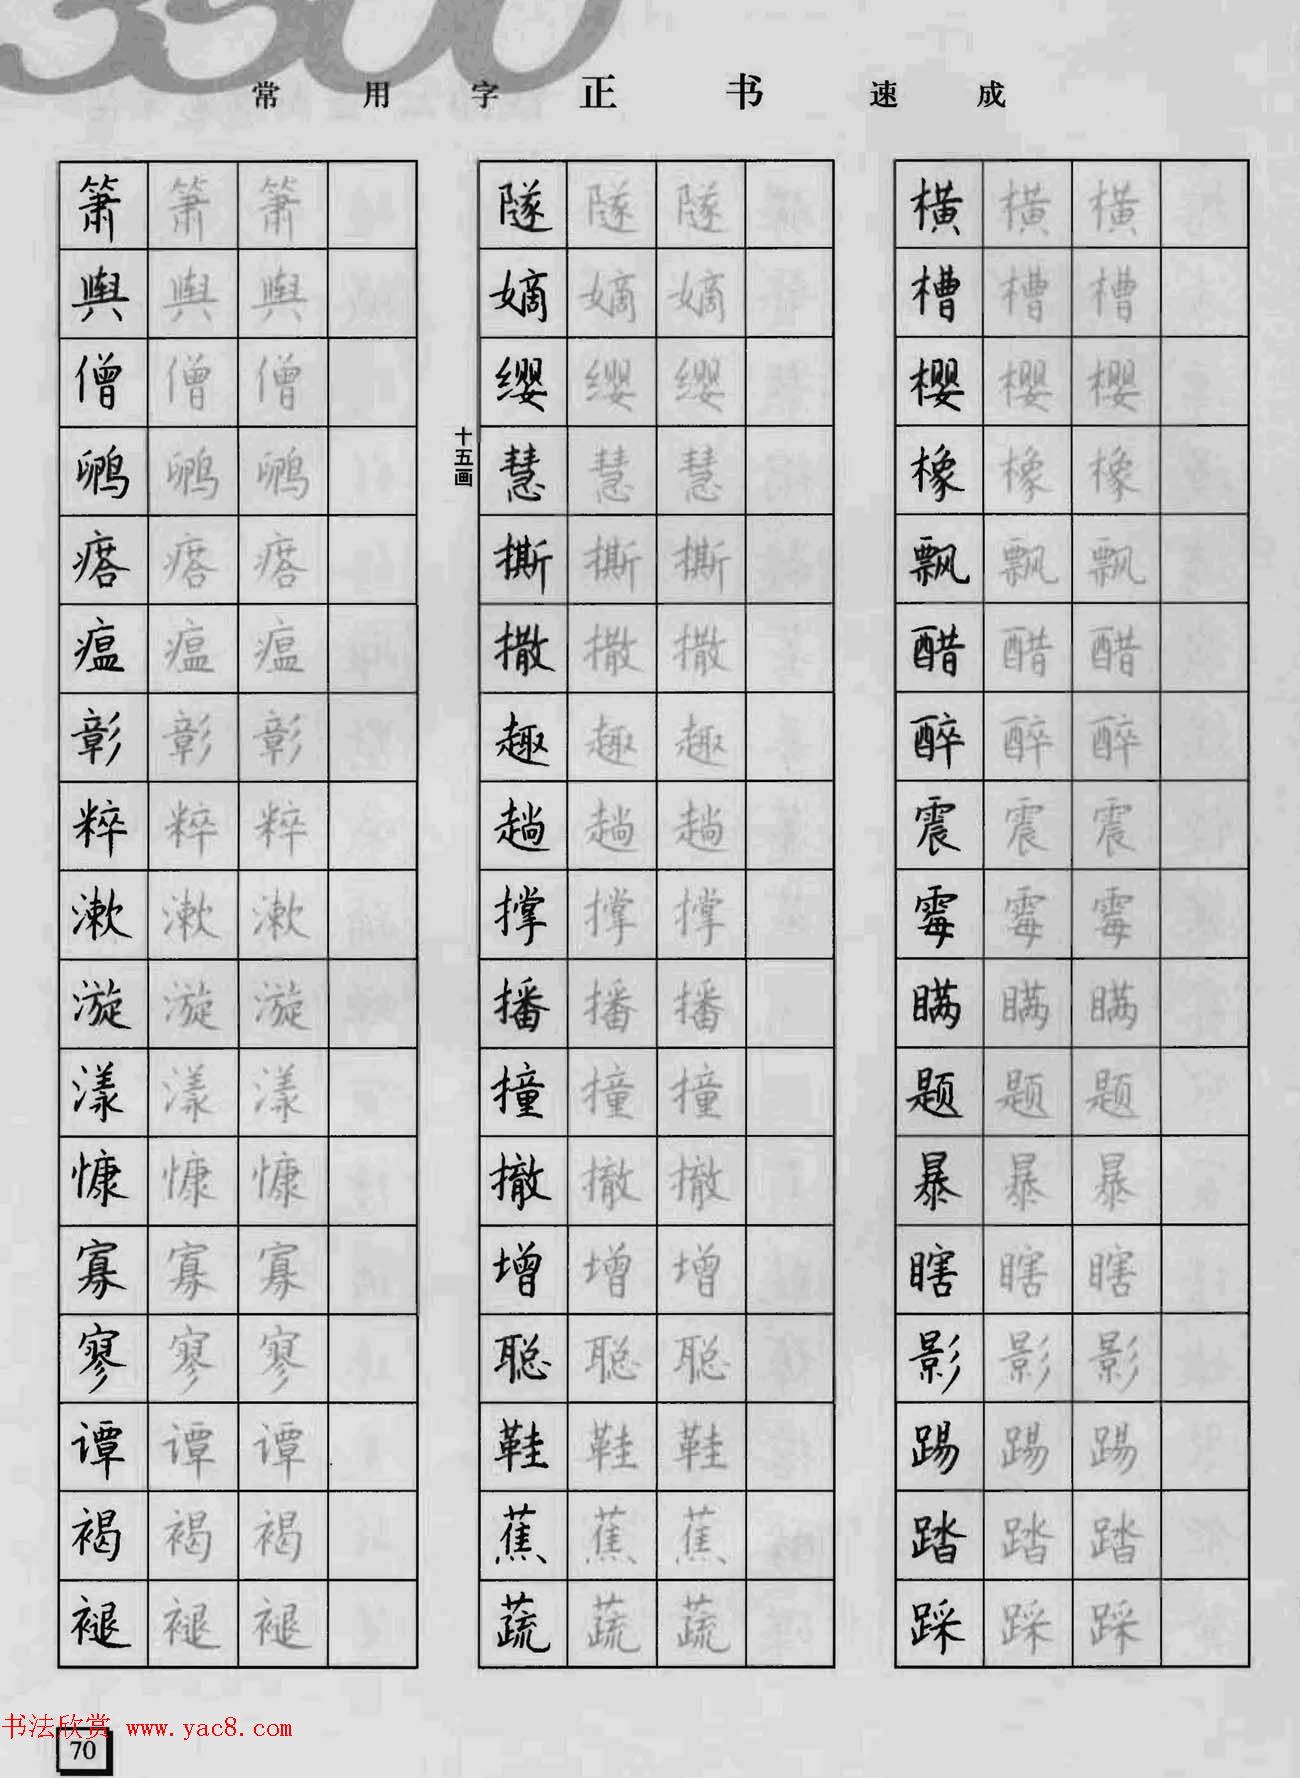 3500
常用字正书速成
箫 箫 箫
舆 舆 舆
僧 僧 僧
鹏 鹏 鹏
瘩 瘩 瘩
瘟 瘟 瘟
彰 彰 彰
粹 粹 粹
漱 漱 漱
漩 漩 漩
漾 漾 漾
慷 慷 慷
寡 寡 寡
寥 寥 寥
谭 谭 谭
褐 褐 褐
褪 褪 褪
隧 隧 隧
嫡 嫡 嫡
缨 缨 缨
十五画
慧 慧 慧
撕 撕 撕
撒 撒 撒
趣 趣 趣
趟 趟 趟
撑 撑 撑
播 播 播
撞 撞 撞
撤 撤 撤
增 增 增
聪 聪 聪
鞋 鞋 鞋
蕉 蕉 蕉
蔬 蔬 蔬
横 横 横
槽 槽 槽
樱 樱 樱
橡 橡 橡
飘 飘 飘
醋 醋 醋
醉 醉 醉
震 震 震
霉 霉 霉
瞒 瞒 瞒
题 题 题
暴 暴 暴
瞎 瞎 瞎
影 影 影
踢 踢 踢
踏 踏 踏
踩 踩 踩
书法欣赏 www.yac8.com
70